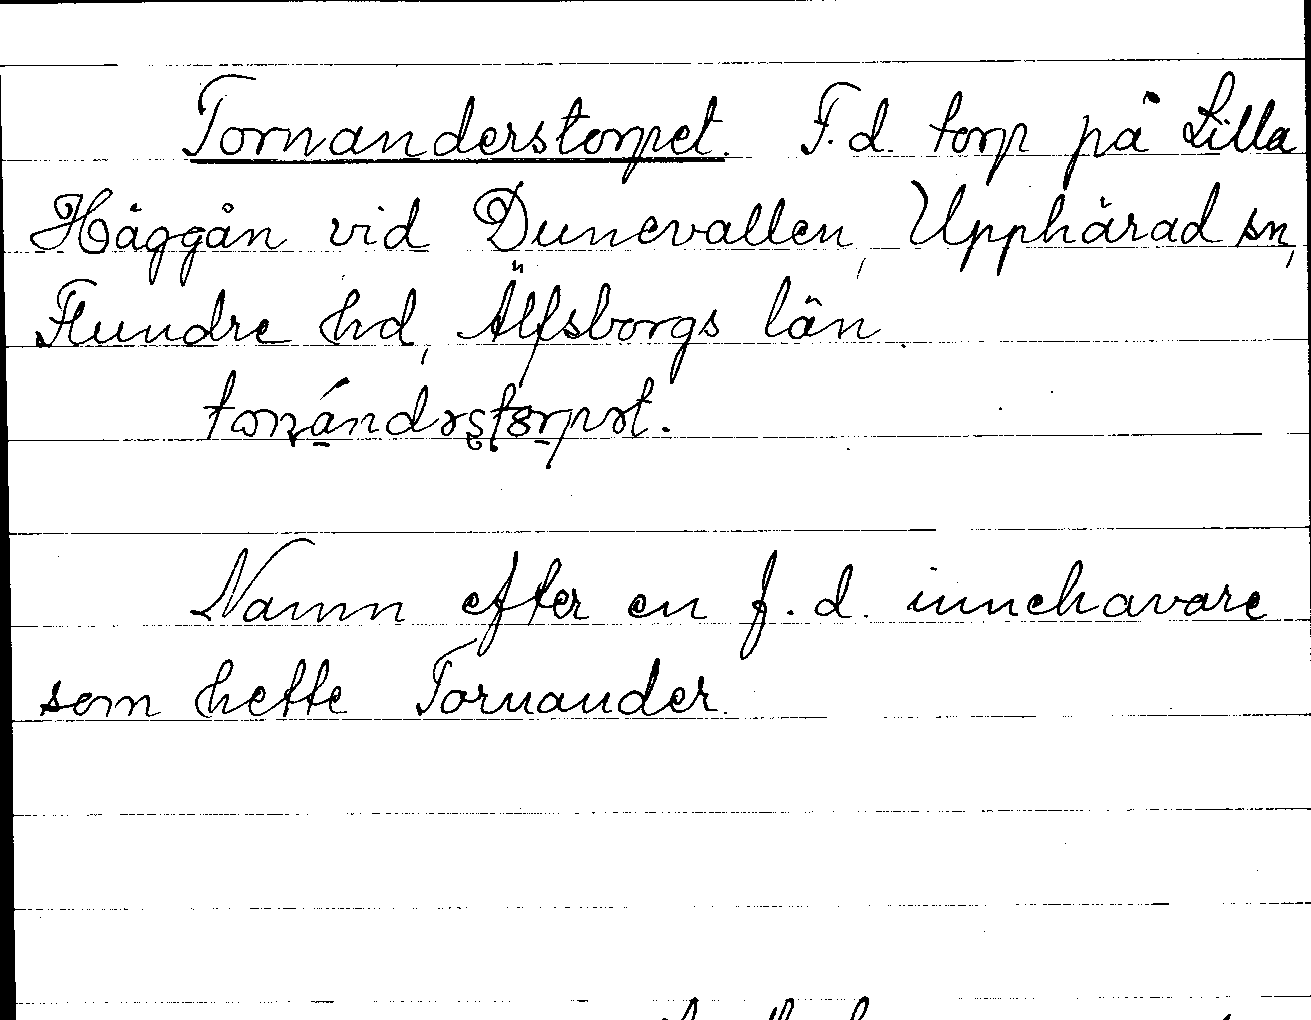 Tornanderstorpet. F.d. torp på Lilla
Häggån vid Dunevallen, Upphärad sn,
Flundre hd, Älfsborgs län.
Namn efter en f.d. innehavare
som hette Tornander.